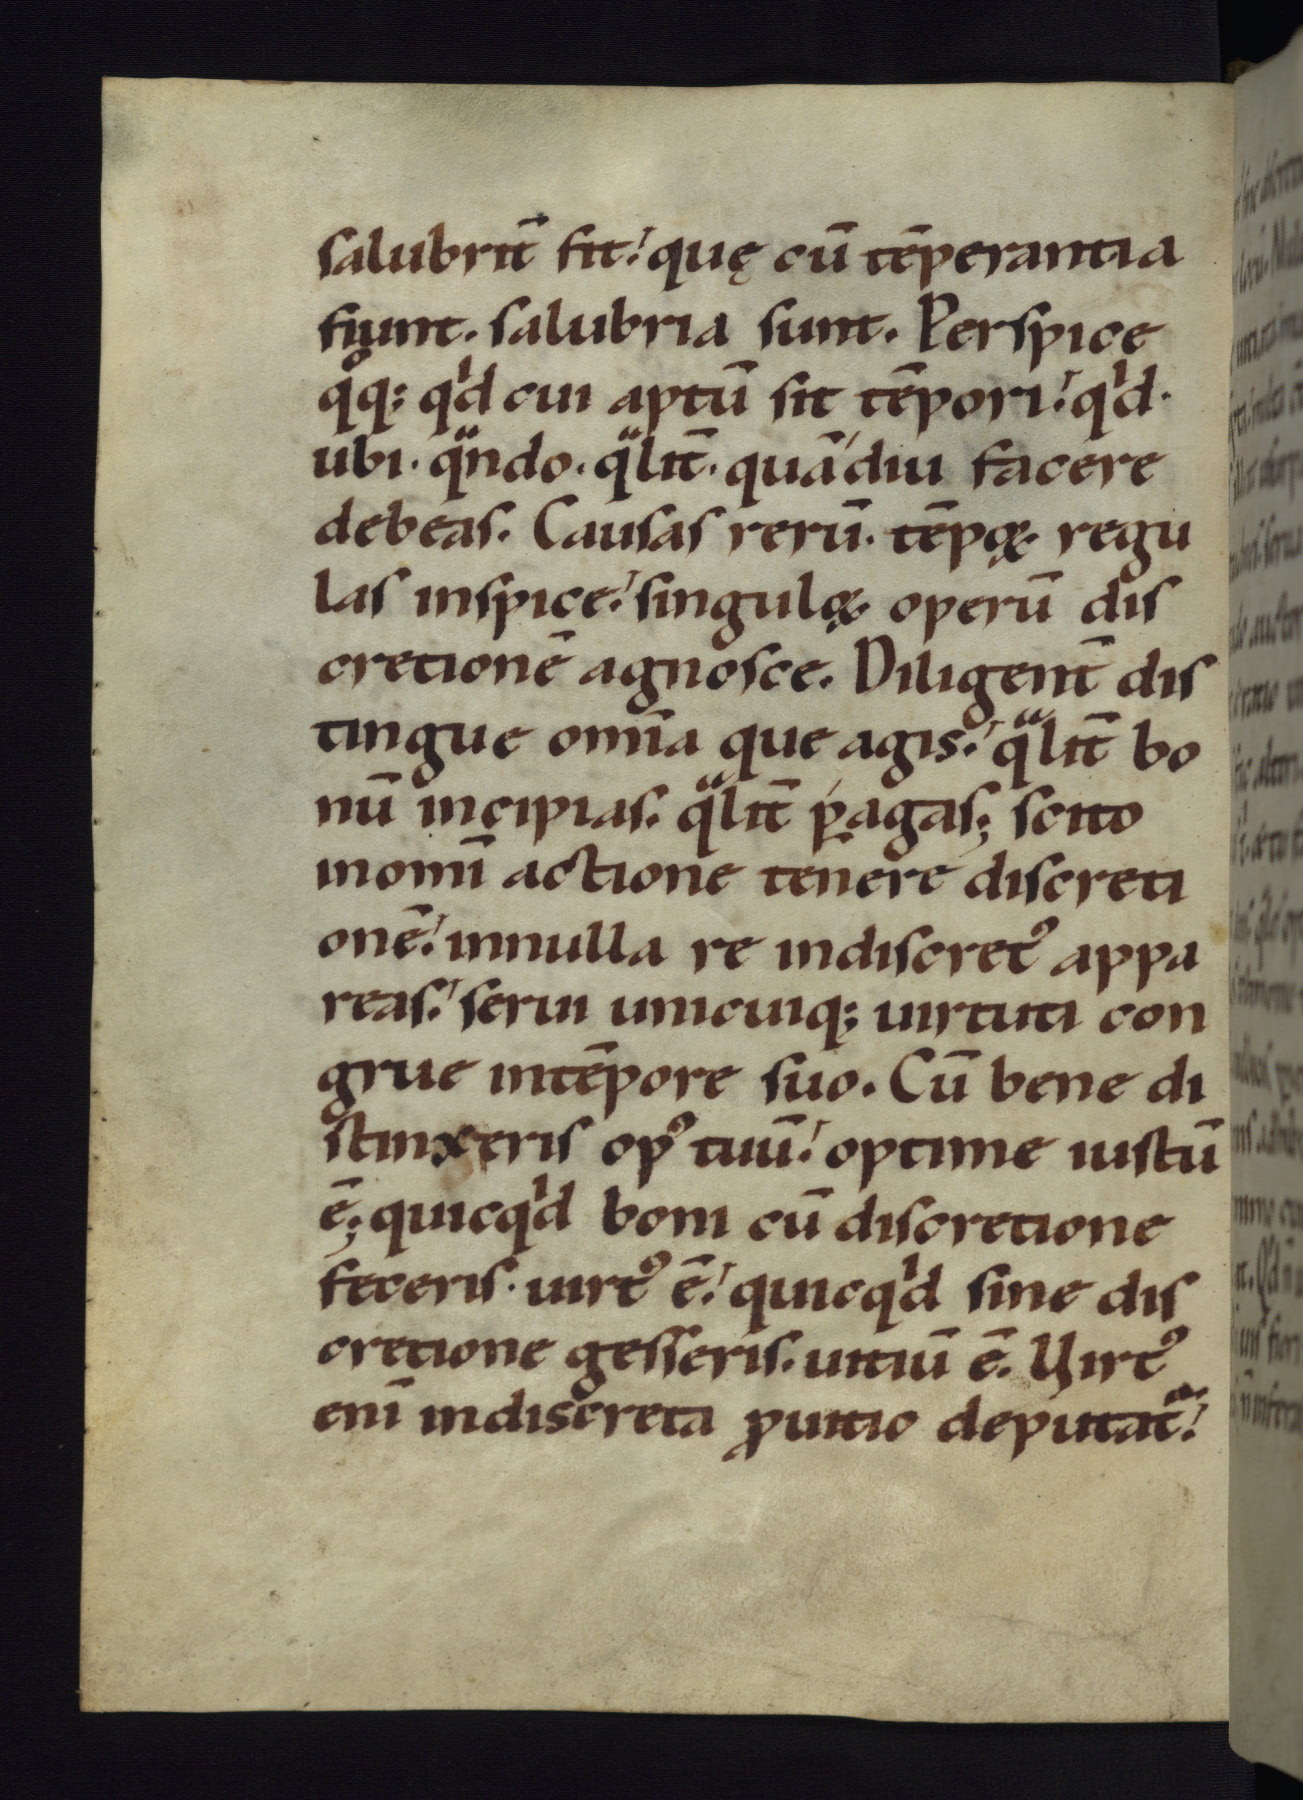 salubrit̄ fit. quę cū tēperantia
fiunt. salubria sunt. Perspice
qͦq; qͥd cui aptū sit tēpori. qͥd.
ubi. qᵃndo. qᵃlit̄. quādiu facere
debeas. Causas rerū. tēpoꝝ regu
las inspice. singuloꝝ operū dis
cretionē agnosce. Diligent̄ dis
tingue om̄ia que agis. qᵃlit̄ bo
nū incipias. qᵃlit̄ ꝑagas; scito
inomī actione tenere discreti
onē. innulla re indiscretꝰ appa
reas. serui unicuiq; uirtuti con
grue intēpore suo. Cū bene di
stinxeris opꝰ tuū. optime iustū
ē; quicqͥd boni cū discretione
feceris. uirtꝰ ē. quicqͥd sine dis
cretione gesseris. uitiū ē. Uirtꝰ
enī indiscreta ꝓuitio deputat᷑.